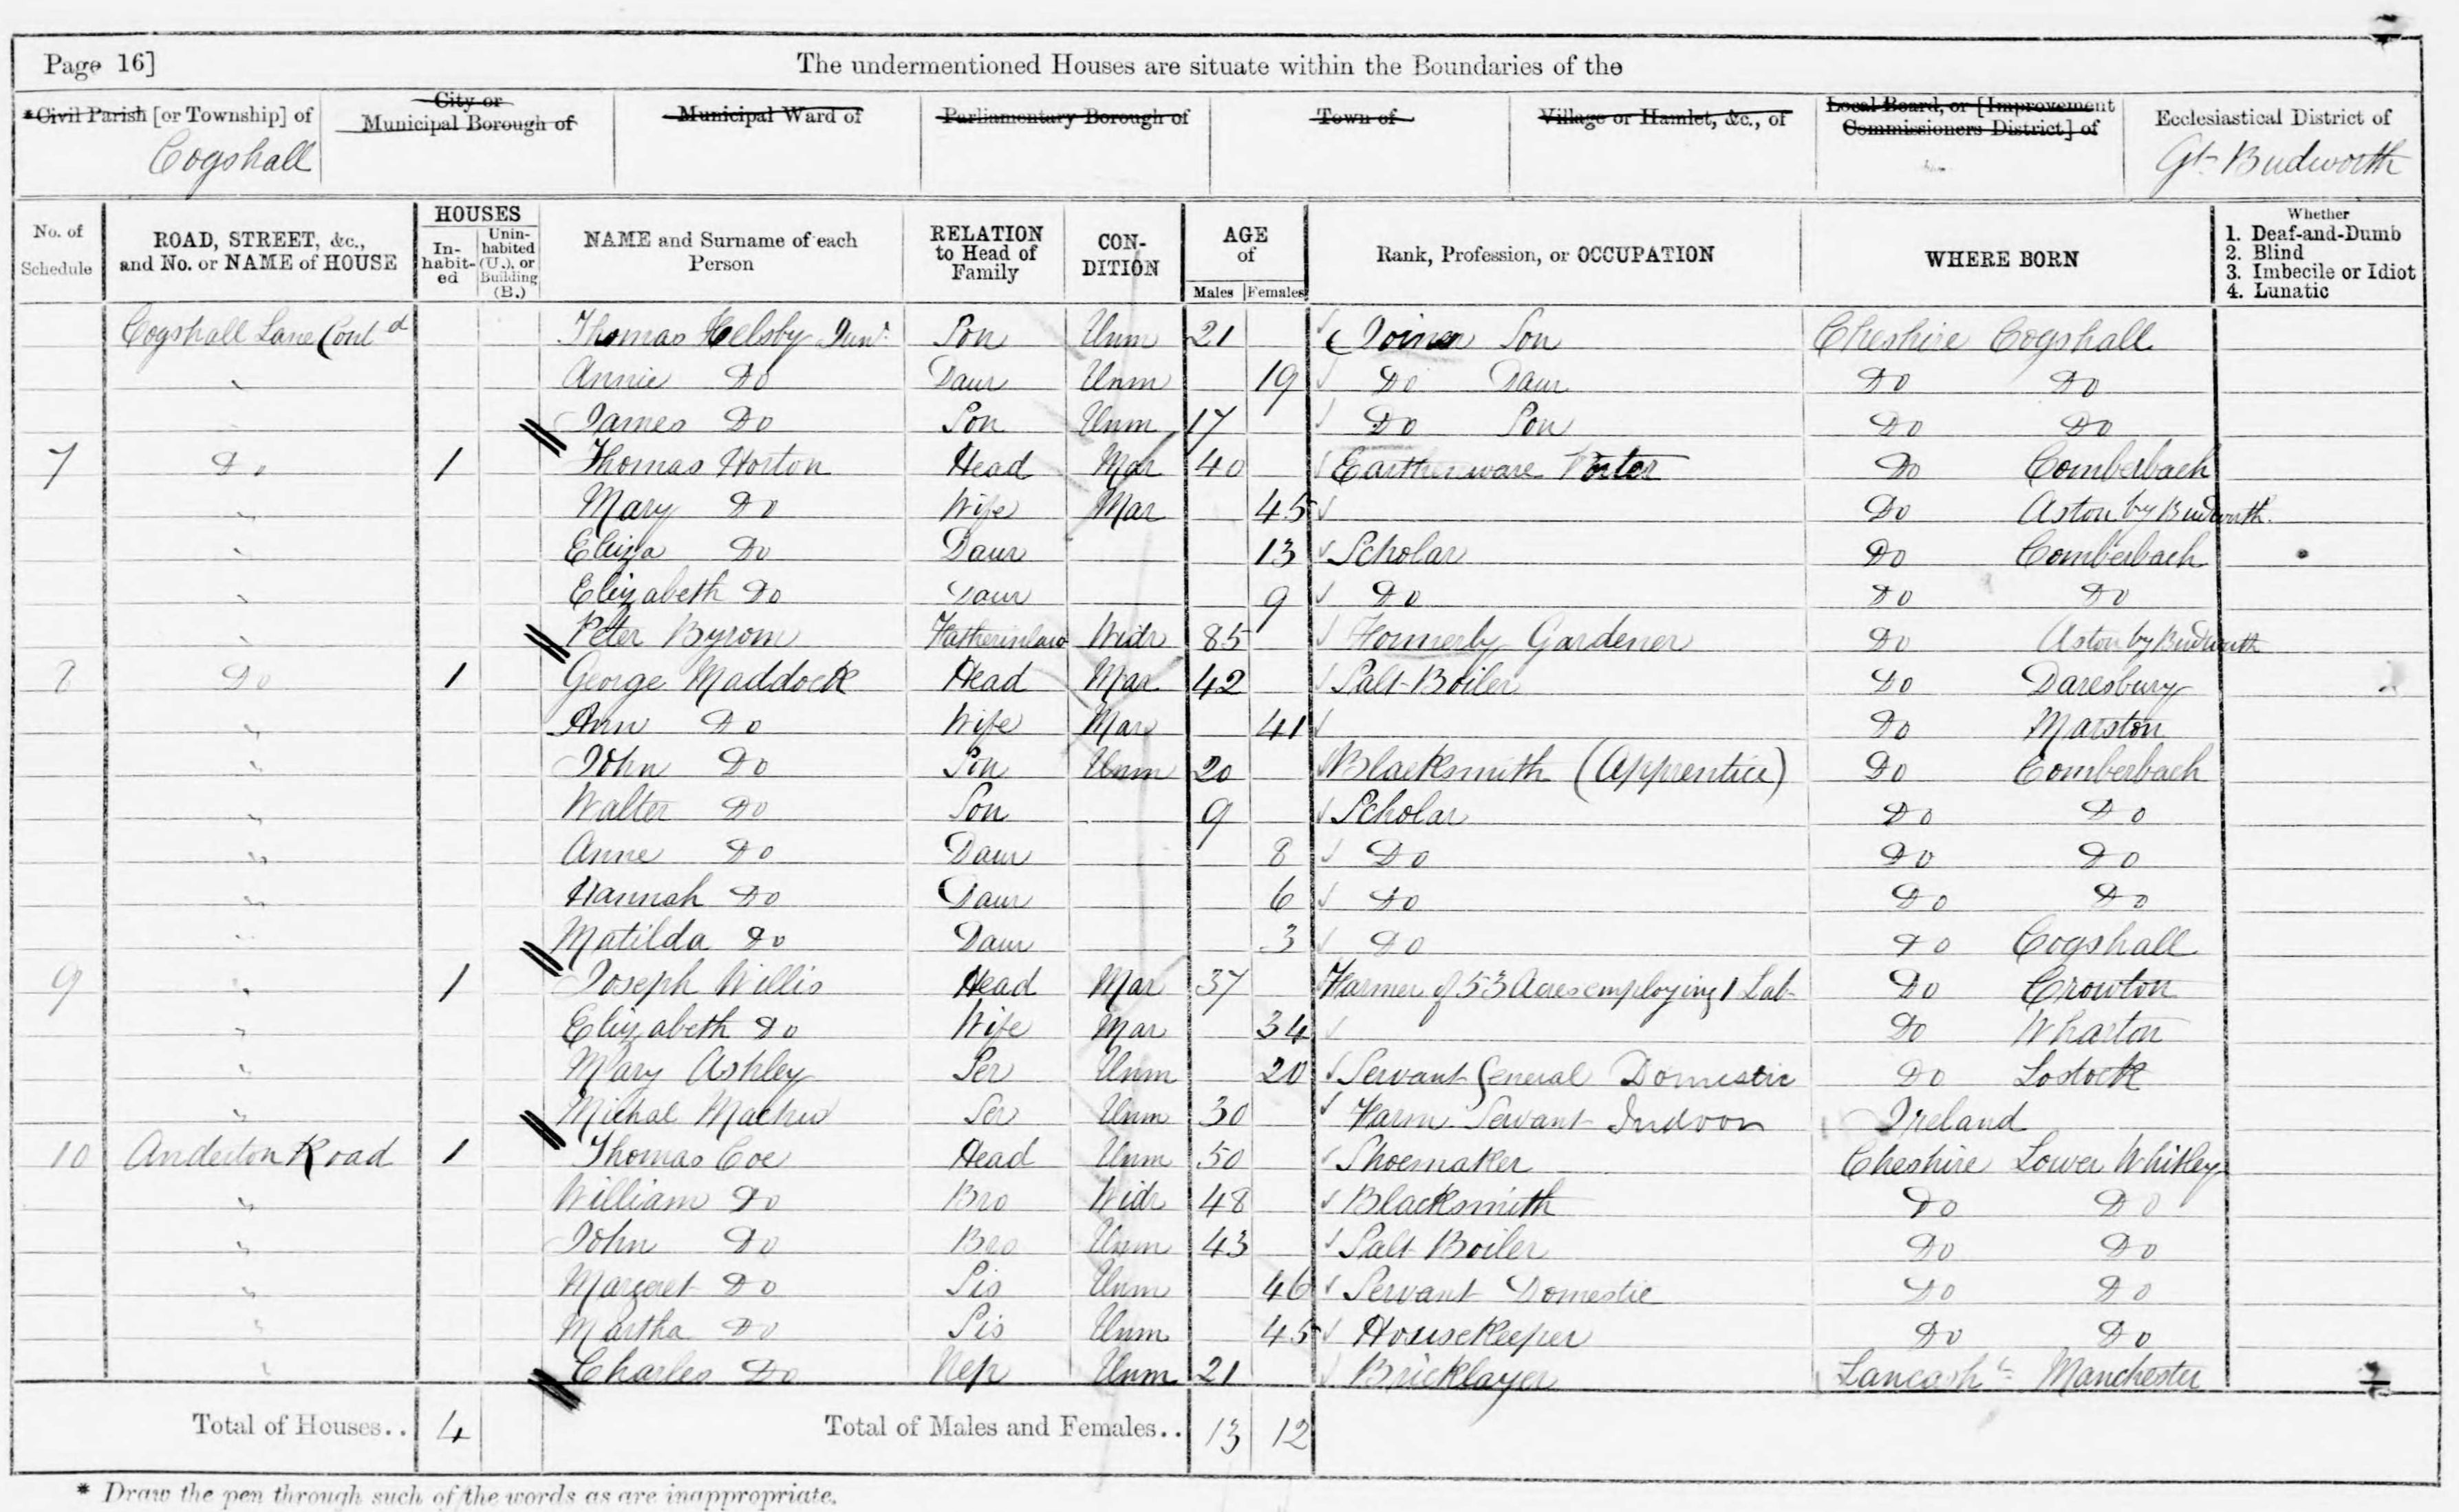 Page 16]
The undermentioned Houses are situate within the Boundaries of the
*Civil Parish [or Township] of
City or Municipal Borough of
Municipal Ward of
Parliamentary Borough of
Town of
Village or Hamlet, &c., of
Local Board, or [Improvement Commissioners District] of
Ecclesiastical District of
Cogshall
Gt. Budworth
No. of Schedule
ROAD, STREET, &c., and No. or NAME of HOUSE
HOUSES
In-habit-ed
Unin-habited (U.), or Building (B.)
NAME and Surname of each Person
RELATION to Head of Family
CON-DITION
AGE of
Males
Females
Rank, Profession, or OCCUPATION
WHERE BORN
Whether
1. Deaf-and-Dumb
2. Blind
3. Imbecile or Idiot
4. Lunatic
Cogshall Lane Contd Thomas Helsby Junr. Son Unm 21 Joiner Son Cheshire Cogshall
Annie Do Daur Unm 19 Do Daur Do Do
James Do Son Unm 17 Do Son Do Do
7 Do 1 Thomas Horton Head Mar 40 Earthenware Porter Do Comberbach
Mary Do Wife Mar 45 Do Aston by Budworth.
Eliza Do Daur 13 Scholar Do Comberbach
Elizabeth Do Daur 9 Do Do Do
Peter Byrom Fatherinlaw Widr 85 Formerly Gardener Do Aston by Budworth
8 Do 1 George Maddock Head Mar 42 Salt Boiler Do Daresbury
Ann Do Wife Mar 41 Do Marston
John Do Son Unm 20 Blacksmith (Apprentice) Do Comberbach
Walter Do Son 9 Scholar Do Do
Anne Do Daur 8 Do Do Do
Hannah Do Daur 6 Do Do Do
Matilda Do Daur 3 Do Do Cogshall
9 1 Joseph Willis Head Mar 37 Farmer of 53 Acres employing 1 Lab Do Crowton
Elizabeth Do Wife Mar 34 Do Wharton
Mary Ashley Ser Unm 20 Servant General Domestic Do Lostock
Michal Ser Unm 30 Farm Servant Indoor Ireland
10 Anderton Road 1 Thomas Coe Head Unm 50 Shoemaker Cheshire Lower Whitley
William Do Bro Widr 48 Blacksmith Do Do
John Do Bro Unm 43 Salt Boiler Do Do
Margret Do Sis Unm 46 Servant Domestic Do Do
Martha Do Sis Unm 45 Housekeeper Do Do
Charles Do Nep Unm 21 Bricklayer Lancash Manchester
Total of Houses.. 4 Total of Males and Females.. 13 12
* Draw the pen through such of the words as are inappropriate.